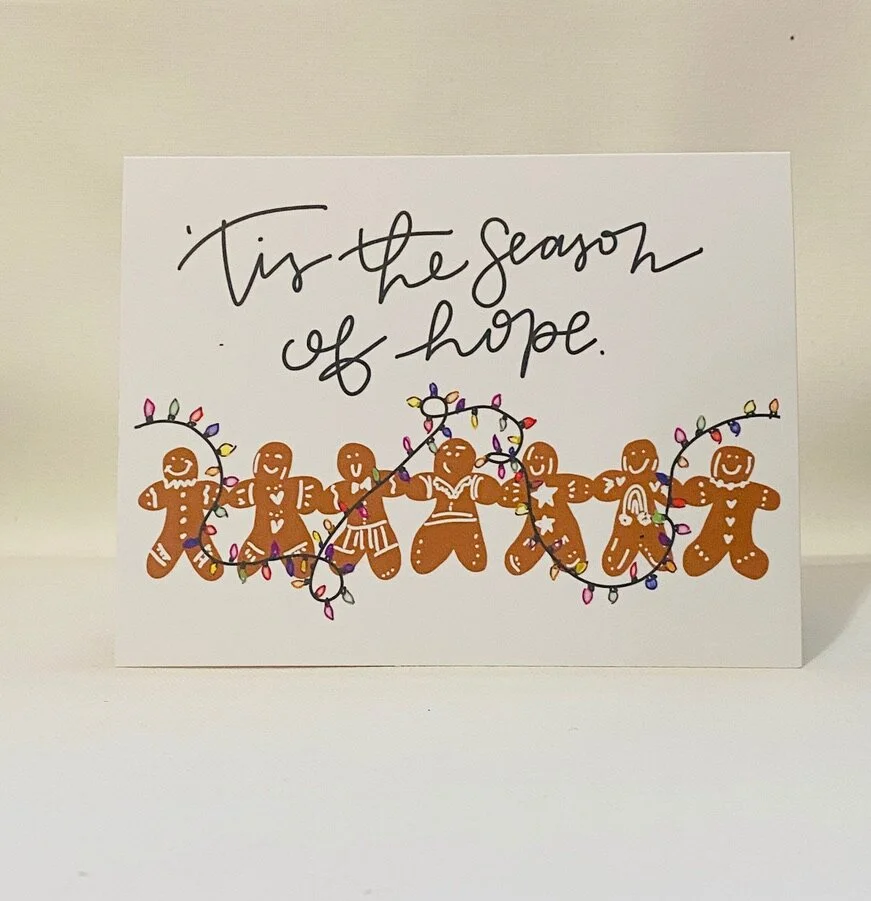 'tis the season
of hope.